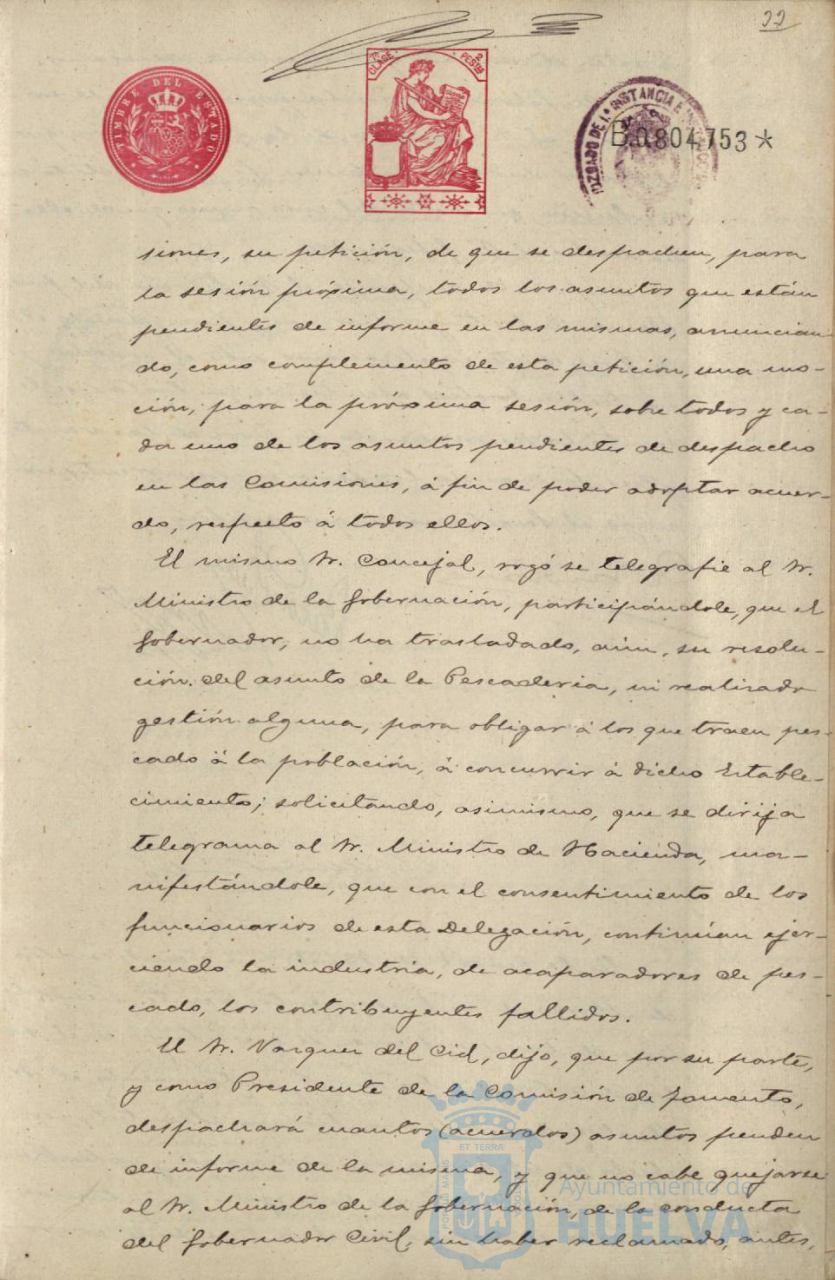 22
TIMBRE DEL ESTADO
7ª CLASE
2 PESTAS
JUZGADO DE 1ª INSTANCIA E
B.0.804.753 *
siones, su petición, de que se despachen, para
la sesión próxima, todos los asuntos que están
pendientes de informe en las mismas, anuncian-
do, como complemento de esta petición, una mo-
ción, para la próxima sesión, sobre todos y ca-
da uno de los asuntos pendientes de despacho
en las Comisiones, á fin de poder adoptar acuer-
do, respecto á todos ellos.
El mismo Sr. Concejal, rogó se telegrafie al Sr.
Ministro de la Gobernación, participándole, que el
Gobernador, no ha trasladado, aún, su resolu-
ción del asunto de la Pescaderia, ni realizado
gestión alguna, para obligar á los que traen pes-
cado á la población, á concurrir á dicho Estable-
cimiento; solicitando, asimismo, que se dirija
telegrama al Sr. Ministro de Hacienda, ma-
nifestándole, que con el consentimiento de los
funcionarios de esta Delegación, continúan ejer-
ciendo la industria, de acaparadores de pes-
cado, los contribuyentes fallidos.
El Sr. Vazquez del Cid, dijo, que por su parte,
y como Presidente de la Comisión de Fomento,
despachará cuantos (acuerdos) asuntos penden
de informe de la misma, y que no cabe quejarse
al Sr. Ministro de la Gobernación, de la conducta
del Gobernador Civil, sin haber reclamado, antes,
Ayuntamiento de
HUELVA